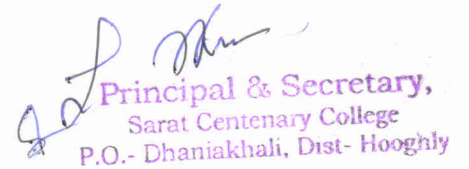 Principal & Secretary,
Sarat Centenary College
P.O.- Dhaniakhali, Dist- Hooghly